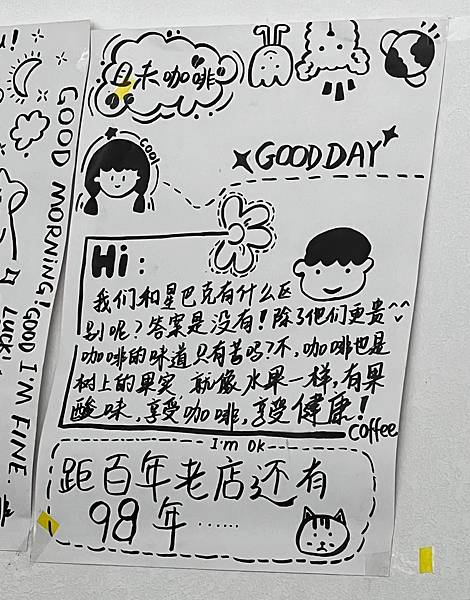 且末咖啡
Cool
GOOD DAY
Hi:
我们和星巴克有什么区
别呢？答案是没有！除了他们更贵^^
咖啡的味道只有苦吗？不，咖啡也是
树上的果实，就像水果一样，有果
酸味，享受咖啡，享受健康！
Coffee
I'm OK
距百年老店还有
98年……
GOOD MORNING! GOOD I'M FINE.
LUCK